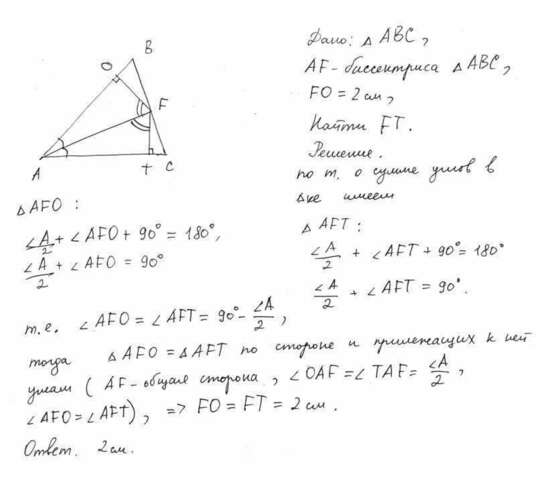 B
O
F
A
T
C
Дано: △ ABC,
AF - биссектриса △ ABC,
FO = 2 см,
Найти FT.
Решение.
по т. о сумме углов в
△ке имеем
△ AFO :
∠A/2 + ∠AFO + 90° = 180°,
∠A/2 + ∠AFO = 90°
△ AFT :
∠A/2 + ∠AFT + 90° = 180°
∠A/2 + ∠AFT = 90°.
т.е. ∠AFO = ∠AFT = 90° - ∠A/2,
тогда △AFO = △AFT по стороне и прилежащих к ней
углам ( AF - общая сторона, ∠OAF = ∠TAF = ∠A/2,
∠AFO = ∠AFT), => FO = FT = 2 см.
Ответ. 2 см.